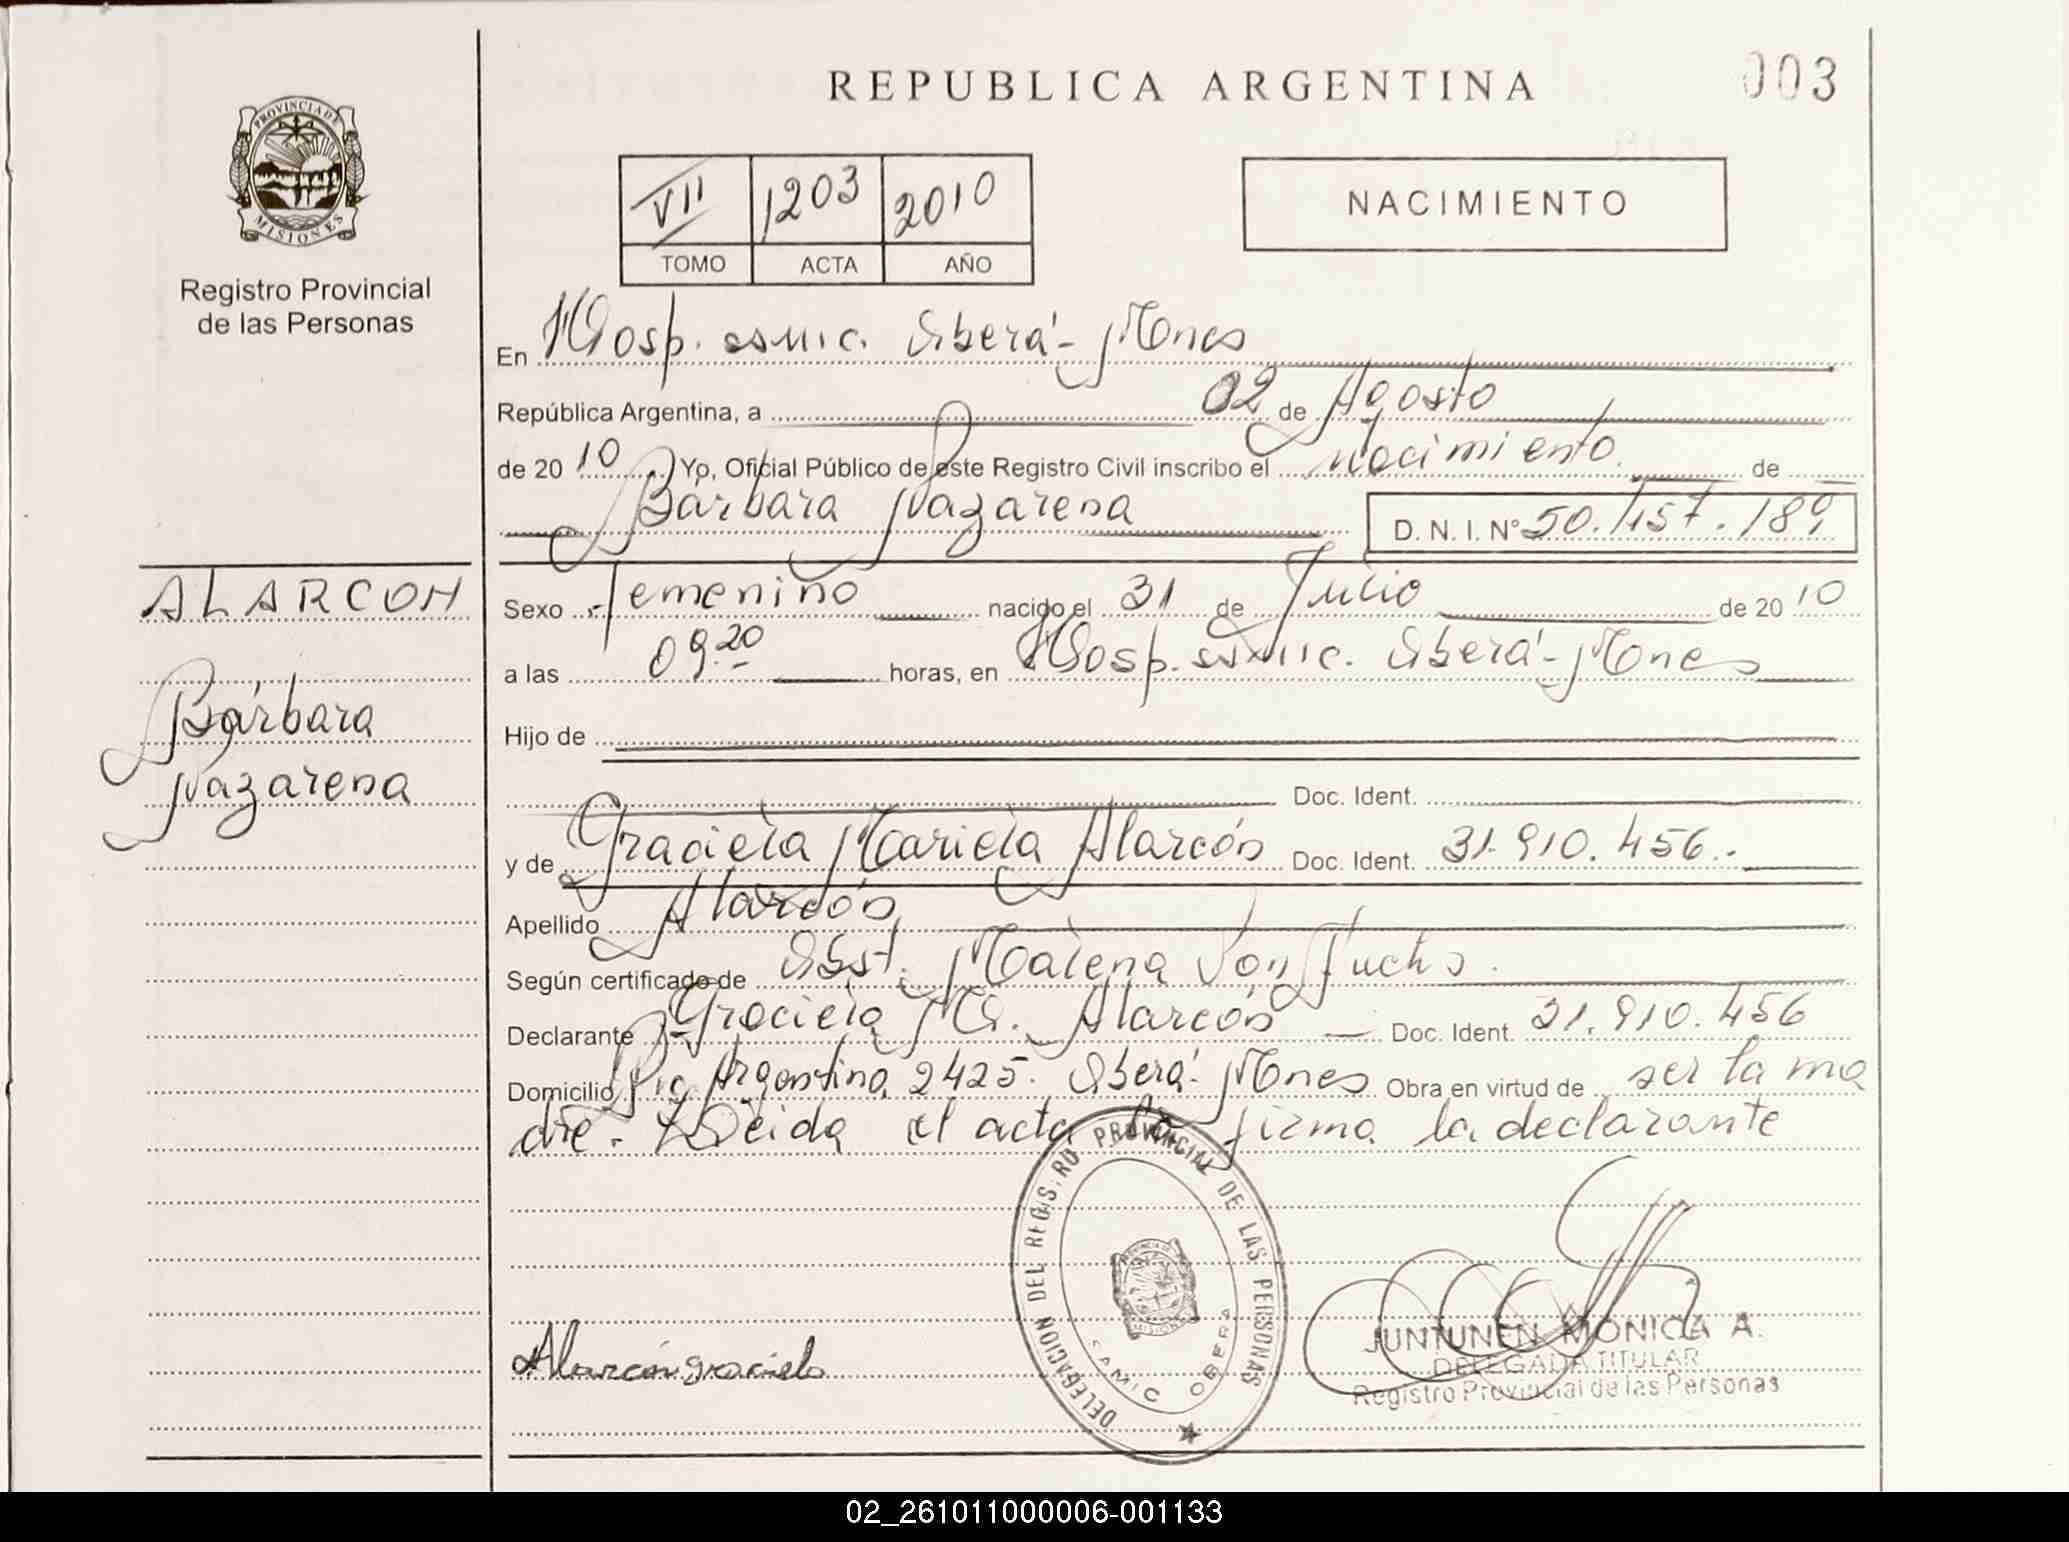 REPUBLICA ARGENTINA
003
PROVINCIA DE
MISIONES
Registro Provincial
de las Personas
VII 1203 2010
TOMO ACTA AÑO
NACIMIENTO
En Hosp. SAMIC. Oberá - Mnes
República Argentina, a 02 de Agosto
de 2010 Yo, Oficial Público de este Registro Civil inscribo el nacimiento de
Bárbara Nazarena D. N. I. Nº 50.157.189
ALARCON
Bárbara
Nazarena
Sexo Femenino nacido el 31 de Julio de 2010
a las 09.20 horas, en Hosp. SAMIC. Oberá - Mnes
Hijo de
Doc. Ident.
y de Graciela Mariela Alarcón Doc. Ident. 31.910.456.
Apellido Alarcón
Según certificado de Obst. Malena Von Fuchs.
Declarante Graciela Ma. Alarcón Doc. Ident. 31.910.456
Domicilio Argentina 2425. Oberá - Mnes Obra en virtud de ser la ma
dre. Leida el acta la firma la declarante
DELEGACION DEL REGISTRO PROVINCIAL DE LAS PERSONAS
PROVINCIA DE
MISIONES
SAMIC OBERA
Alarcón graciela
JUNTUNEN MONICA A.
DELEGADA TITULAR
Registro Provincial de las Personas
02_261011000006-001133